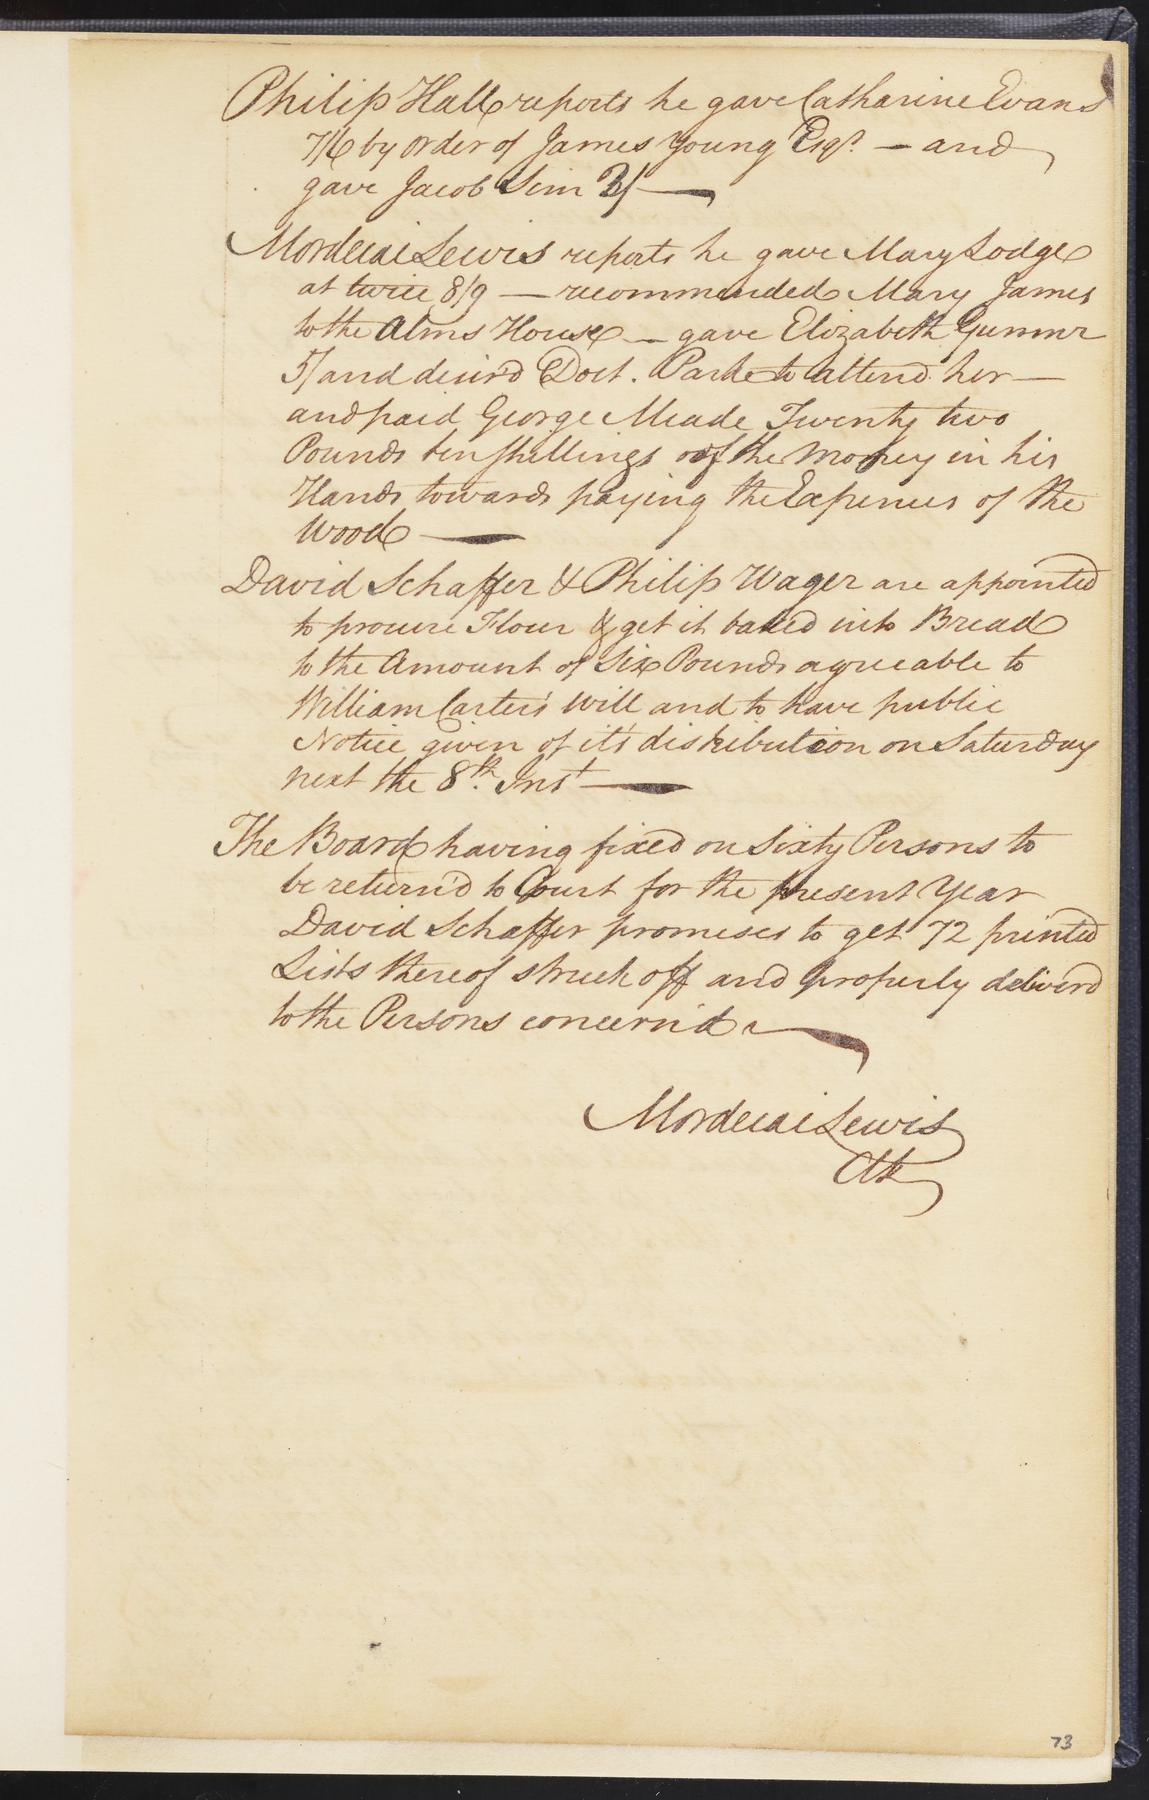 Philip Hall reports he gave Catharine Evans
7/6 by order of James Young Esqr. — and
gave Jacob Sim 3/ —
Mordecai Lewis reports he gave Mary Lodge
at twice 8/9 — recommended Mary James
to the Alms House — gave Elizabeth Gunner
5/ and desir'd Doct. Parke to attend her —
and paid George Meade Twenty two
Pounds ten shillings of the Money in his
Hands towards paying the Expences of the
Wood —
David Schaffer & Philip Wager are appointed
to procure Flour & get it baked into Bread
to the Amount of Six Pounds agreeable to
William Carter's Will and to have public
Notice given of it's distribution on Saturday
next the 8th. Inst —
The Board having fixed on Sixty Persons to
be return'd to Court for the present Year
David Schaffer promises to get 72 printed
Lists thereof struck off and properly deliver'd
to the Persons concern'd —
Mordecai Lewis
Clk
73